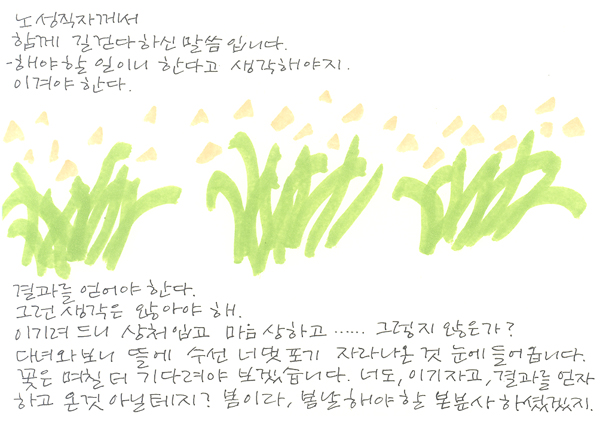 노 성직자께서
함께 길걷다 하신 말씀입니다.
-해야 할 일이니 한다고 생각해야지.
이겨야 한다.
결과를 얻어야 한다.
그런 생각은 않아야 해.
이기려 드니 상처입고 마음 상하고 …… 그렇지 않은가?
다녀와보니 뜰에 수선 너댓포기 자라나온 것 눈에 들어옵니다.
꽃은 며칠 더 기다려야 보겠습니다. 너도, 이기자고, 결과를 얻자
하고 온것 아닐테지? 봄이라, 봄날 해야할 본분사 하셨겠지.